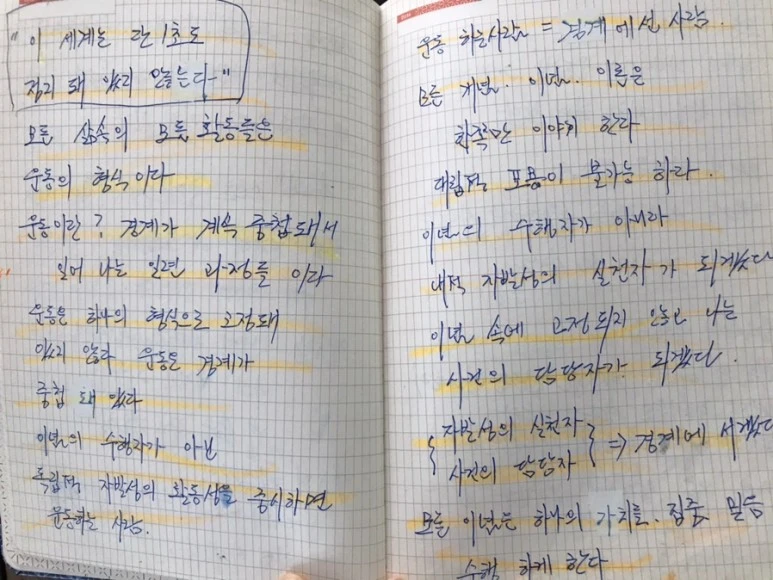 "이 세계는 단 1초도
정리 돼 있지 않는다-"
모든 삶속의 모든 활동들은
운동의 형식이다
운동이란? 경계가 계속 중첩돼서
일어 나는 일련 과정들 이라
운동은 하나의 형식으로 고정돼
있지 않다 운동은 경계가
중첩 돼 있다
이념의 수행자가 아닌
독립적 자발성의 활동성을 중시하면
운동하는 사람.
운동 하는사람 = 경계에 선 사람.
모든 개념. 이념. 이론은
한쪽만 이야기 한다
대립적 포용이 불가능 하다.
이념의 수행자가 아니라
내적 자발성의 실천자가 되겠다
이념 속에 고정되지 않고 나는
사건의 담당자가 되겠다.
자발성의 실천자
사건의 담당자 => 경계에 서겠다
모든 이념은 하나의 가치를. 집중, 믿음
수행 하게 한다